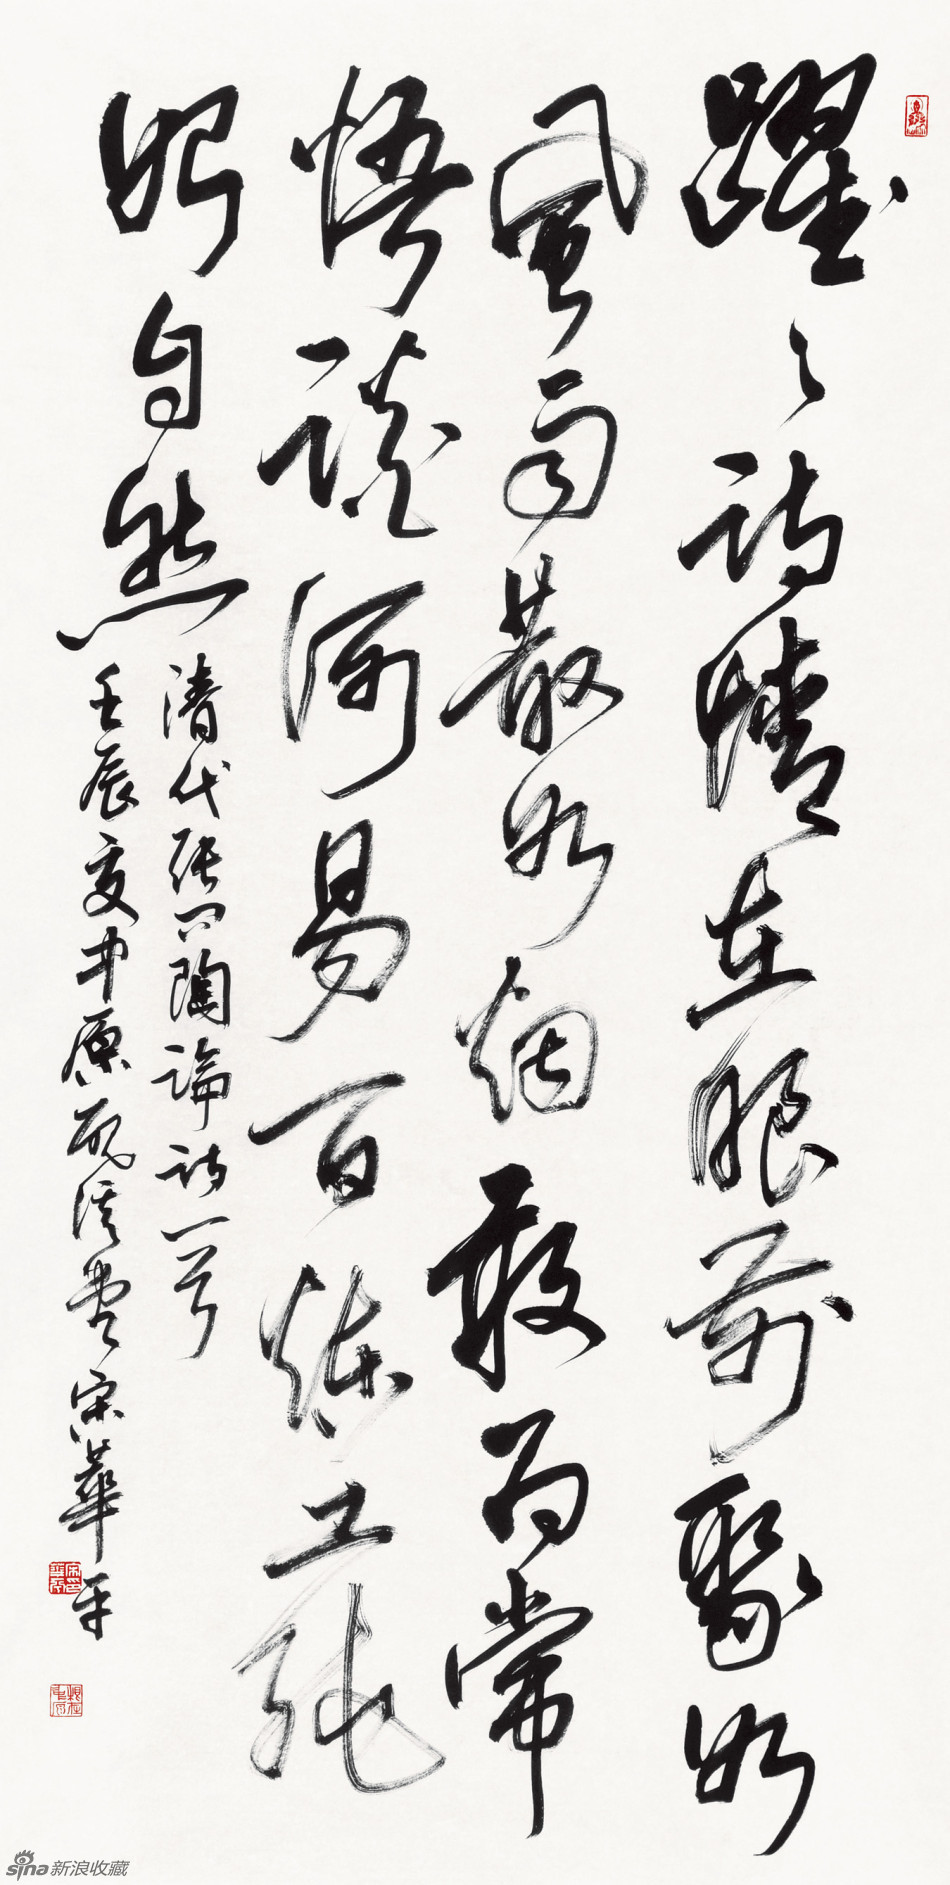 躍〻詩情在眼前聚如
風雨散如烟敢為常
悟談何易百煉工純
始自然
清代張問陶論詩一首
壬辰夏中原溪宋華平
sina新浪收藏